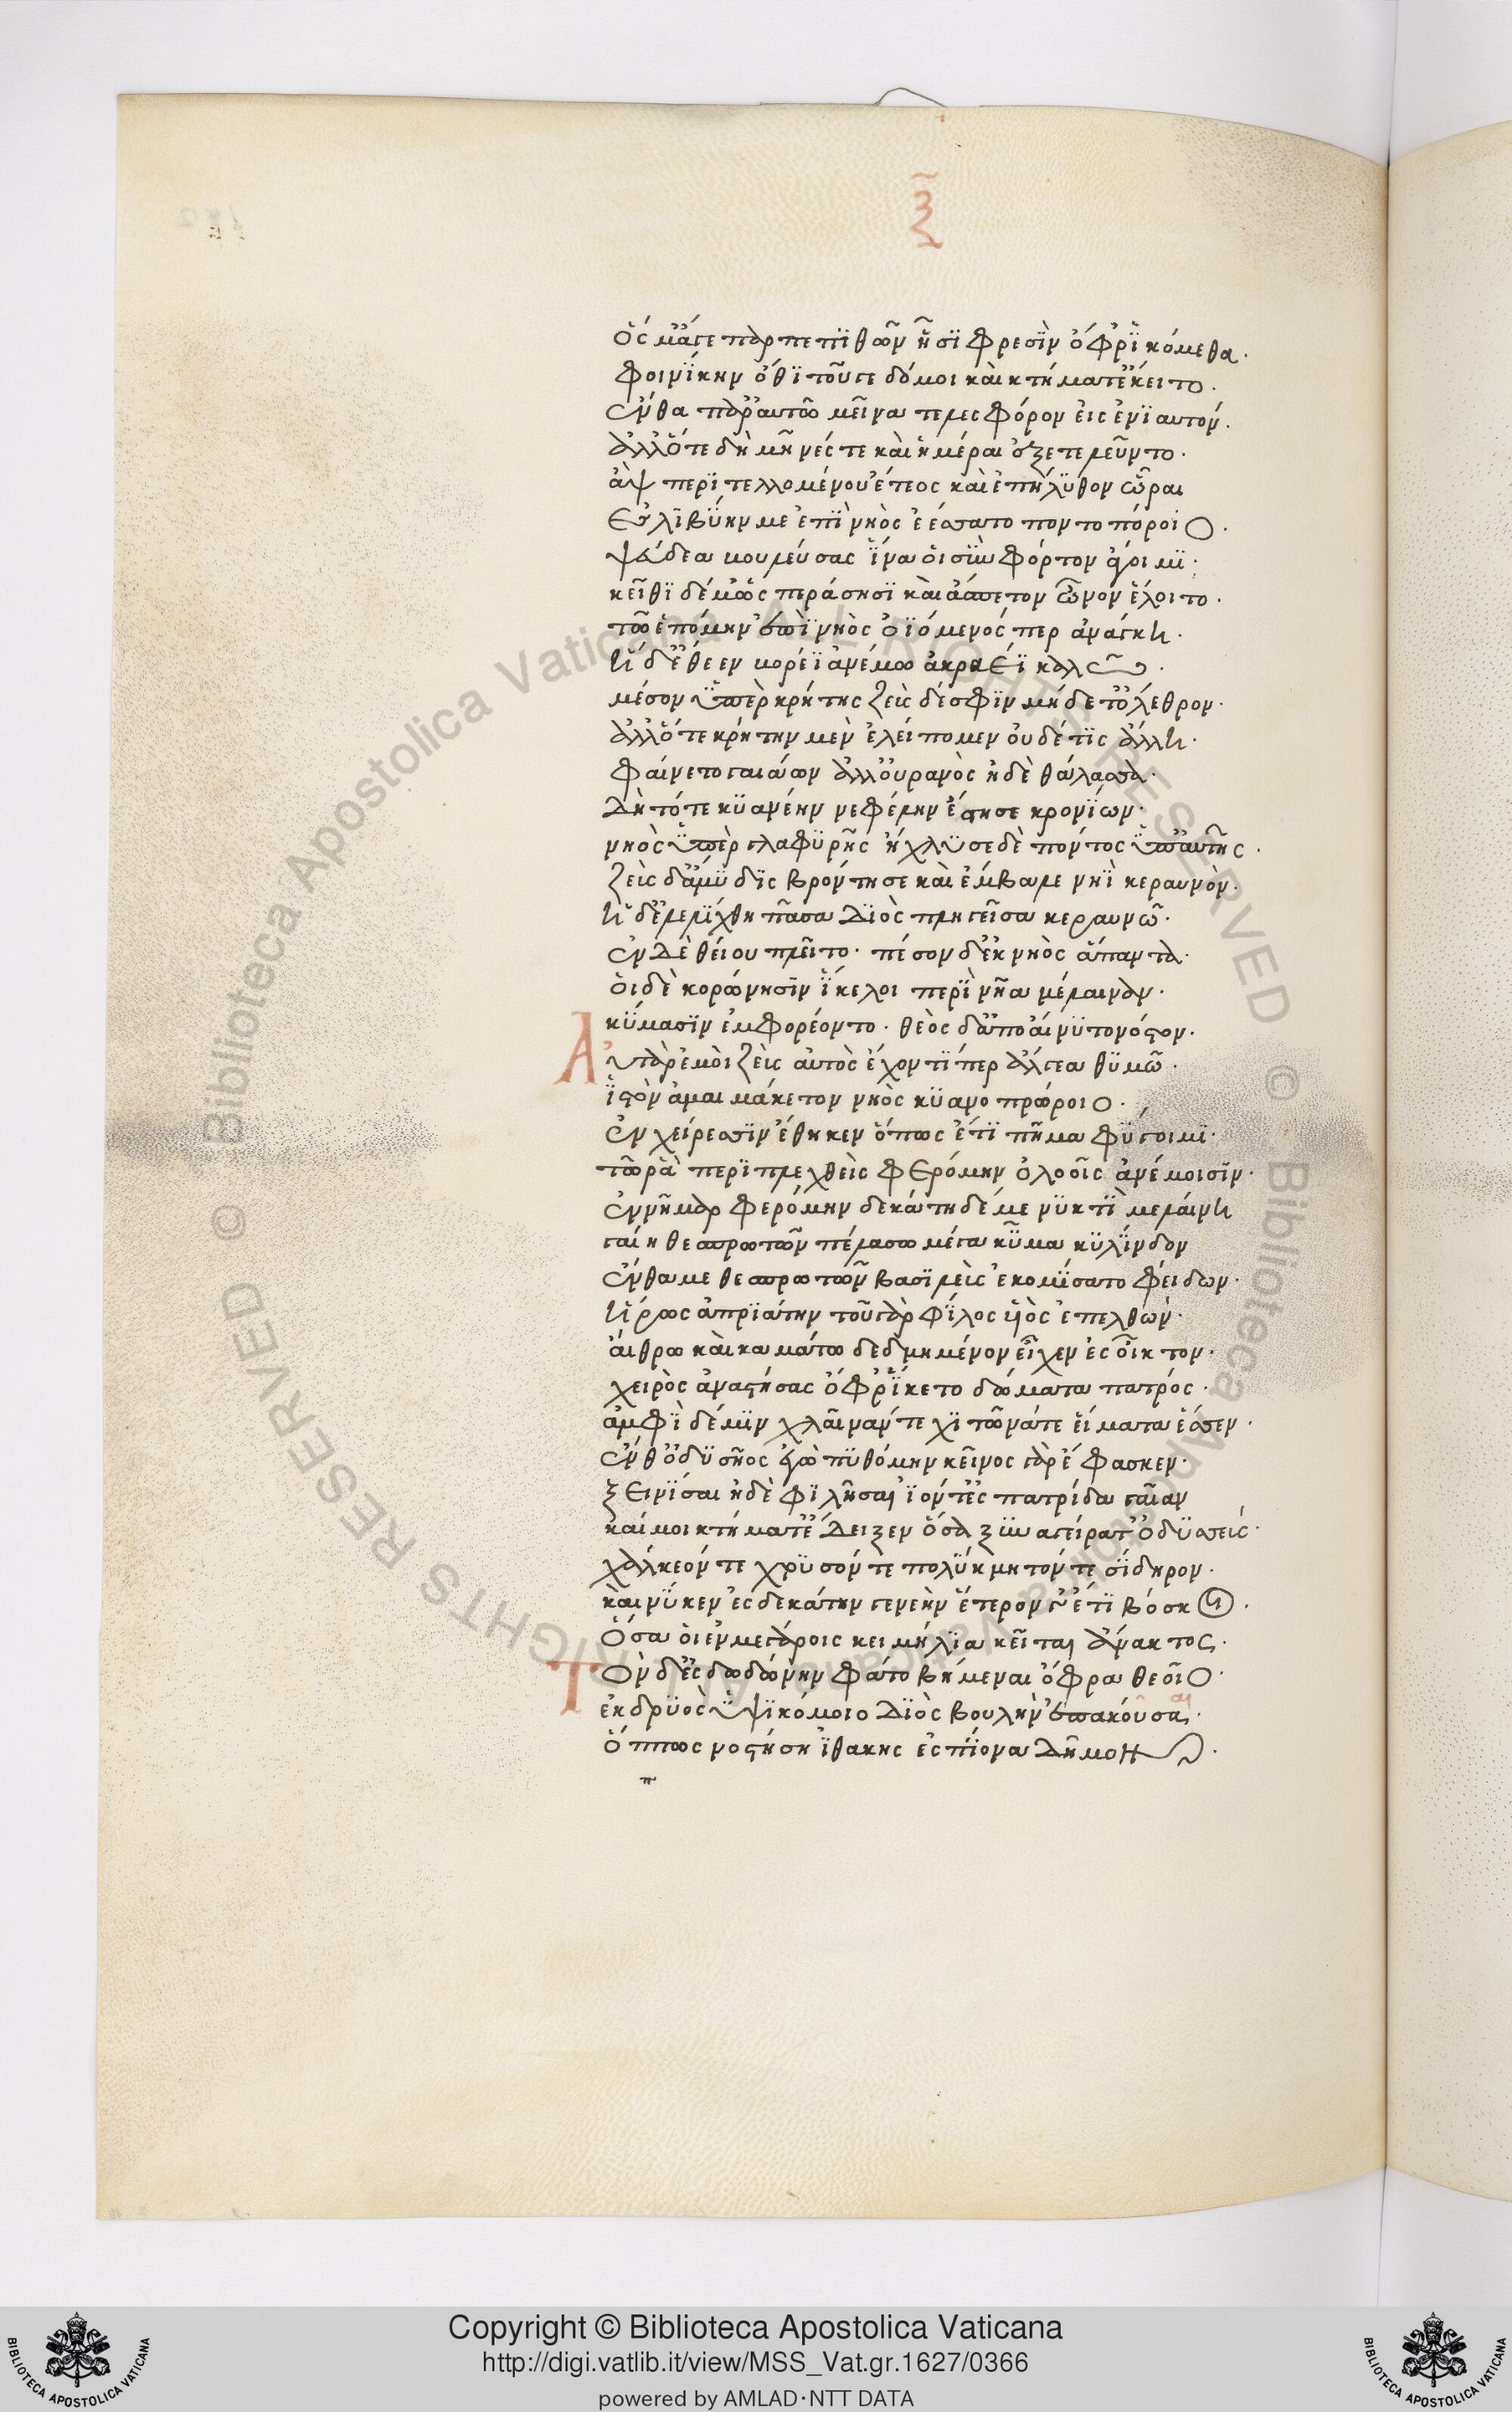 ξ
ὅς μ' ἄγε παρπεπιθῶν ᾗσϊ φρεσῒν ὄφρ' ῒκόμεθα.
φοινΐκην ὅθϊ τοῦγε δόμοι καὶ κτήματ' ἔκειτο.
ἔνθα παρ' αὐτῶ μεῖνα τελεσφόρον εἰς ἐνϊαυτόν.
ἀλλ' ὅτε δὴ μῆνές τε καὶ ἡμέραι ἐξετελεῦντο.
ἂψ περϊτελλομένου ἔτεος καὶ ἐπήλϋθον ὧραι
ἐς λϊβϋην με ἐπῒ νηὸς ἐέσσατο ποντοπόροιο.
ψεύδεα βουλεύσας ἵνα οἱ σῢν φόρτον ἄγοιμϊ.
κεῖθϊ δέ μ' ὡς περάσησϊ καὶ ἄσπετον ὦνον ἕλοιτο.
τῶ ἑπόμην ἐπῒ νηὸς ὀϊόμενός περ ἀνάγκη.
ἡ δ' ἔθεεν βορέϊ ἀνέμω ἀκραέϊ καλῶ.
μέσον ὑπὲρ κρήτης ζεὺς δέ σφϊν μήδετ' ὄλεθρον.
ἀλλ' ὅτε κρήτην μὲν ἐλείπομεν οὐδέ τϊς ἄλλη.
φαίνετο γαιάων ἀλλ' οὐρανὸς ἠδὲ θάλασσα.
δὴ τότε κϋανέην νεφέλην ἔστησε κρονΐων.
νηὸς ὕπερ γλαφϋρῆς ἤχλϋσε δὲ πόντος ὑπ' αὐτῆς.
ζεὺς δ' ἄμϋδϊς βρόντησε καὶ ἔμβαλε νηῒ κεραυνόν.
ἡ δ' ἐλελΐχθη πᾶσα Δϊὸς πληγεῖσα κεραυνῶ.
ἐν δὲ θείου πλεῖτο. πέσον δ' ἐκ νηὸς ἅπαντα.
οἱ δὲ κορώνησϊν ἴκελοι περῒ νῆα μέλαιναν.
κϋμασϊν ἐμφορέοντο. θεὸς δ' ἀποαίνϋτο νόστον.
Αὐτὰρ ἐμοὶ ζεὺς αὐτὸς ἔχοντϊ περ ἄλγεα θϋμῶ.
ἱστὸν ἀμαιμάκετον νηὸς κϋανοπρώροιο.
ἐν χείρεσσϊν ἔθηκεν ὅπως ἔτϊ πῆμα φϋγοιμϊ.
τῶ ῥὰ περϊπλεχθεὶς φερόμην ὀλοοῖς ἀνέμοισϊν.
ἐννῆμαρ φερόμην δεκάτη δέ με νϋκτῒ μελαίνη
γαίη θεσπρωτῶν πέλασω μέγα κῦμα κϋλΐνδον
ἔνθα με θεσπρωτῶν βασϊλεὺς ἐκομΐσατο φείδων.
ἥρως ἀπρϊάτην τοῦ γὰρ φΐλος υἱὸς ἐπελθὼν.
αἴθρω καὶ καμάτω δεδμημένον εἶχεν ἐς οἶκτον.
χειρὸς ἀναστήσας ὄφρ' ῒκετο δώματα πατρός.
ἀμφῒ δέ μϊν χλαῖνάν τε χϊτῶνά τε εἵματα ἕσσεν.
ἔνθ' ὀδϋσῆος ἐγὼ πϋθόμην κεῖνος γὰρ ἔφασκεν.
ξεινΐσαι ἠδὲ φϊλῆσαι ϊόντ' ἐς πατρίδα γαῖαν
καί μοι κτήματ' ἔδειξεν ὅσα ξϋναγείρατ' ὀδϋσσεύς.
χαλκεόν τε χρϋσόν τε πολϋκμητόν τε σΐδηρον.
καὶ νϋ κεν ἐς δεκάτην γενεὴν ἕτερόν γ' ἔτϊ βόσκοι.
ὅσα οἱ ἐν μεγάροις κειμήλϊα κεῖται ἄνακτος.
Τὸν δ' ἐς δωδώνην φάτο βήμεναι ὄφρα θεοῖο.
ἐκ δρϋὸς ὑψϊκόμοιο Δϊὸς βουλὴν ἐπακούσαι.
ὅππως νοστήση ϊθάκης ἐς πΐονα δῆμον.